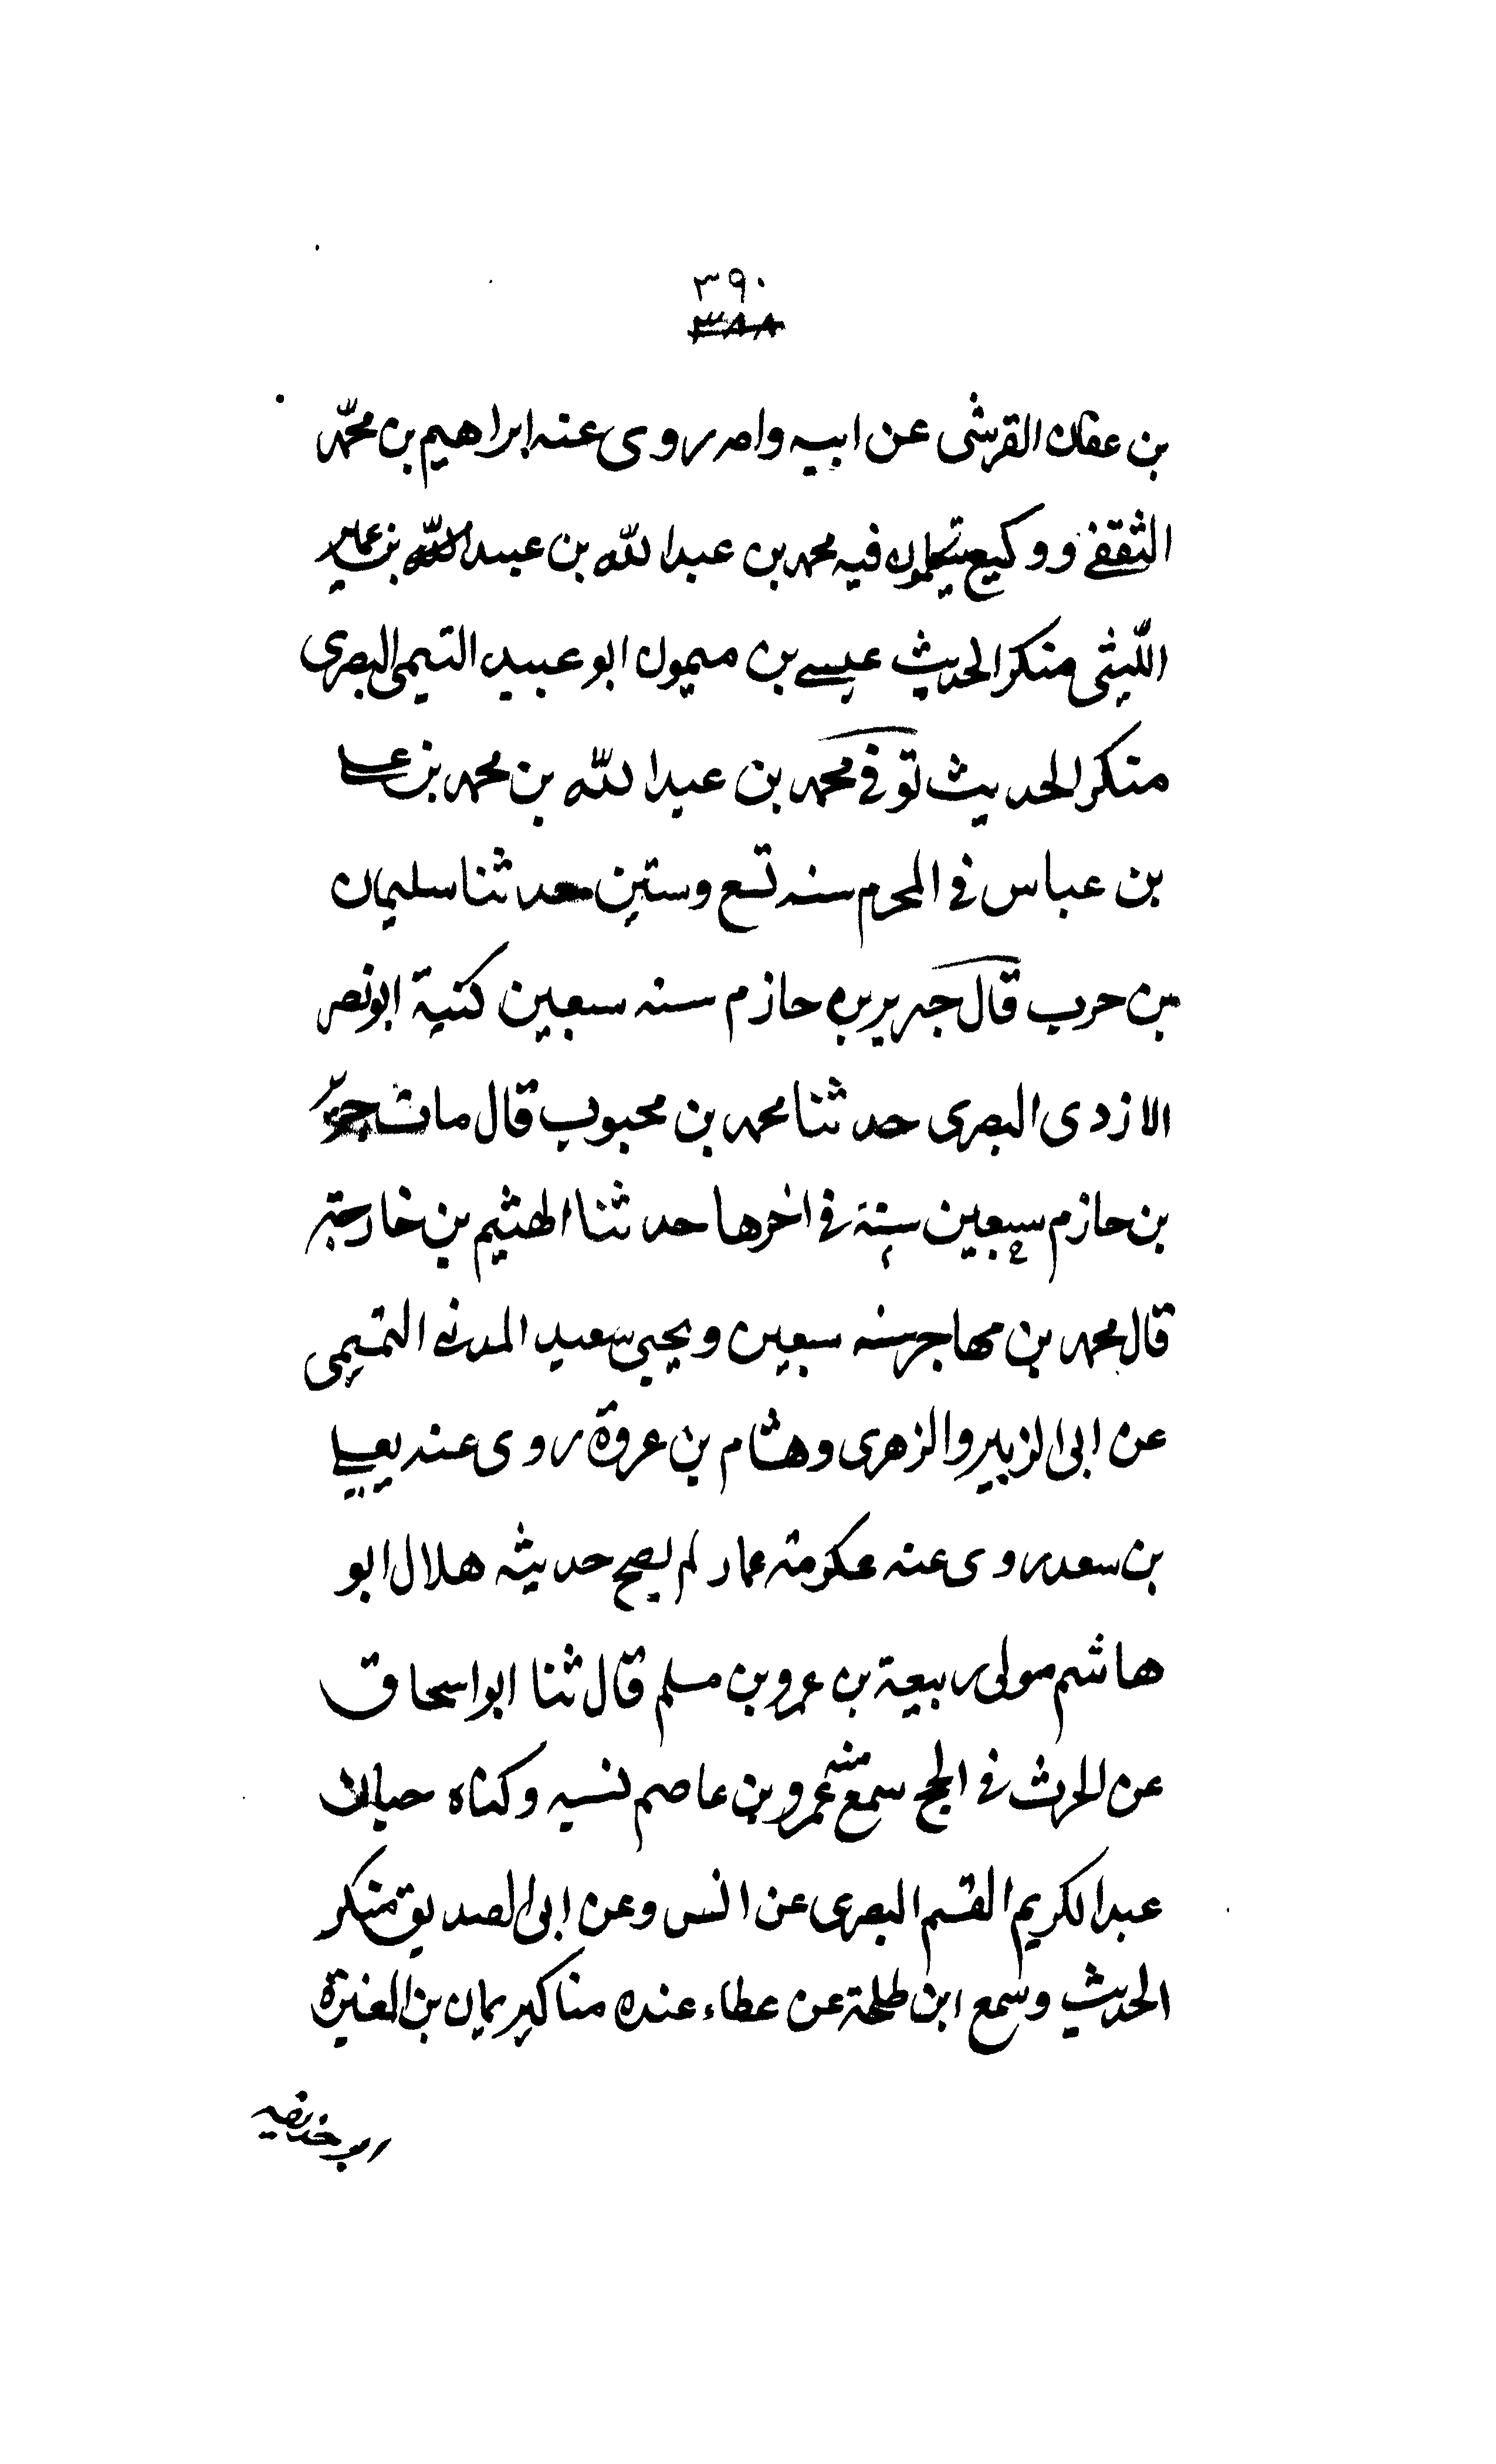 ٣٩٠
٣٨٨
بن عفان القرشى عن ابيه وامه روى عنه ابراهيم بن محمد
الثقفى ووكيع يتكلمون فيه محمد بن عبد الله بن عبيد الله بن عمير
الليثى منكر الحديث عيسى بن ميمون ابو عبيد التيمى البصرى
منكر الحديث توفى محمد بن عبد الله بن محمد بن على
بن عباس فى المحرم سنه تسع وستين حدثنا سليمان
بن حرب قال جرير بن حازم سنه سبعين كنية ابو نصر
الازدى البصرى حدثنا محمد بن محبوب قال مات جرير
بن حازم سبعين سنة فى اخرها حدثنا الهثيم بن خارجة
قال محمد بن مهاجر سنه سبعين ويحيى سعيد المدنى التميمى
عن ابى الزبير والزهرى وهشام بن عروة روى عنه يعيى
بن سعد روى عنه عكرمة عمار لم يصح حديثه هلال ابو
هاشم مولى ربيعة بن عمرو بن مسلم قال ثنا ابو اسحاق
عن الحرث فى الحج سمع منه عمرو بن عاصم نسبه وكناه حبان
عبد الكريم القسم البصرى عن انس وعن ابى الصديق منكر
الحديث وسمع ابن طلحة عن عطاء عنده مناكير يمان بن المغيرة
ابو حذيفه